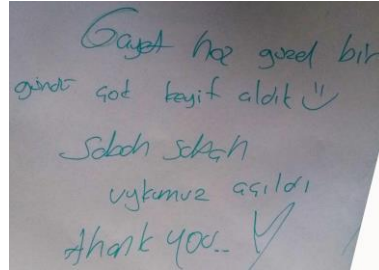 Gayet hoş güzel bir
gündü çok keyif aldık
Sabah sabah
uykumuz açıldı
Thank you..